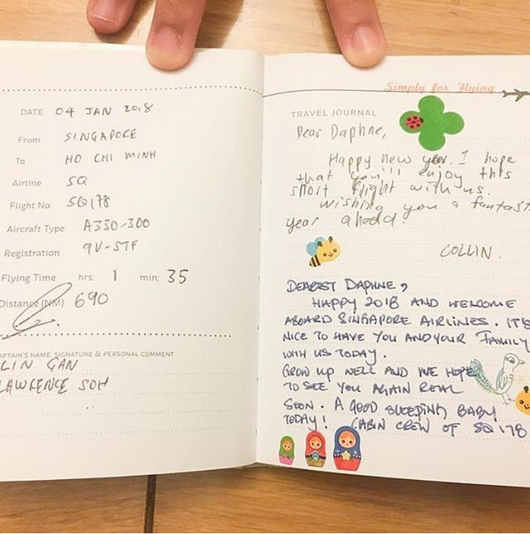 DATE 04 JAN 2018
From SINGAPORE
To HO CHI MINH
Airline SQ
Flight No. SQ178
Aircraft Type A330-300
Registration 9V-STF
Flying Time hrs: 1 min: 35
Distance (NM) 690
APTAIN'S NAME, SIGNATURE & PERSONAL COMMENT
LIN GAN
LAWRENCE SOH
Simply for Flying
TRAVEL JOURNAL
Dear Daphne,
Happy new year. I hope
that you'll enjoy this
short flight with us.
Wishing you a fantast
year ahead!
COLLIN.
DEAREST DAPHNE,
HAPPY 2018 AND WELCOME
ABOARD SINGAPORE AIRLINES. IT'S
NICE TO HAVE YOU AND YOUR FAMILY
WITH US TODAY.
GROW UP WELL AND WE HOPE
TO SEE YOU AGAIN REAL
SOON. A GOOD SLEEPING BABY
TODAY! CABIN CREW OF SQ178